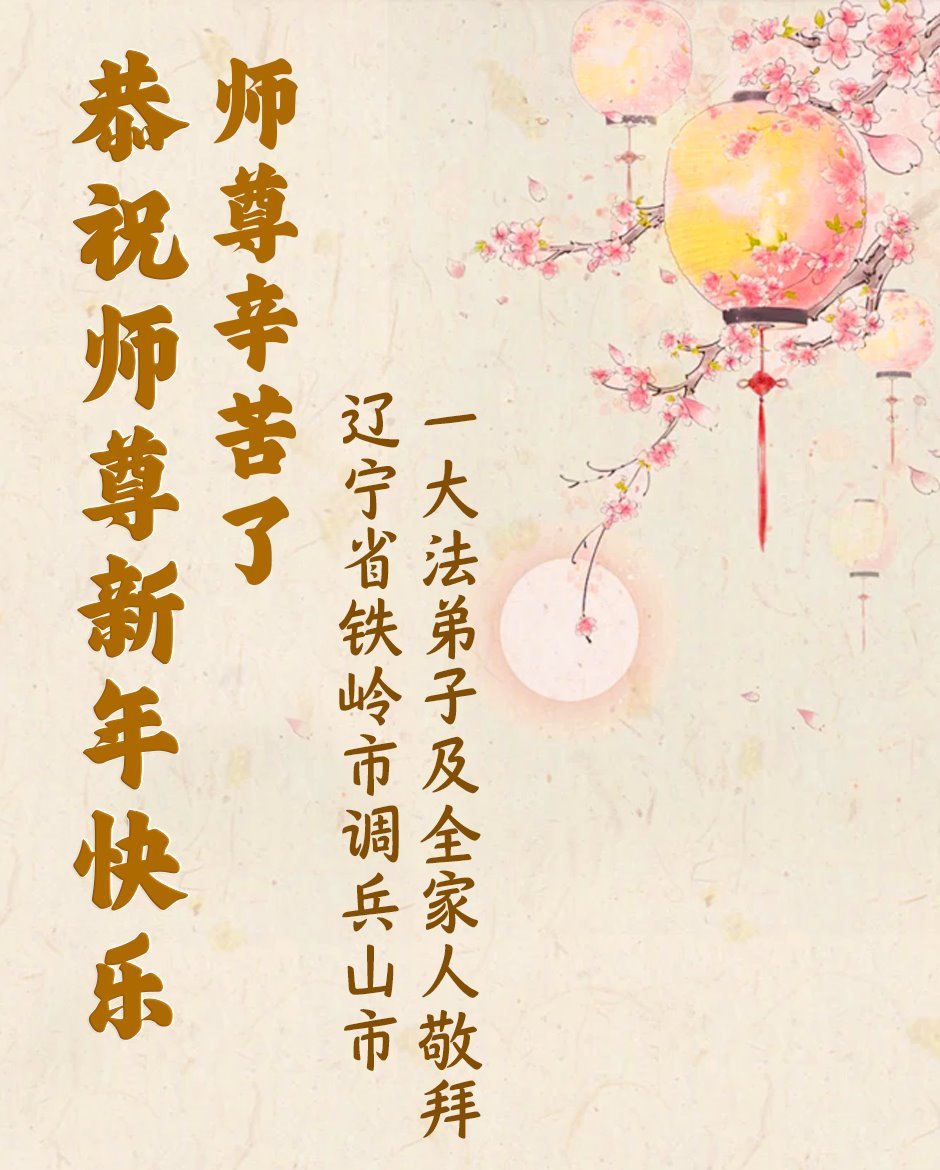 恭祝师尊新年快乐
师尊辛苦了
辽宁省铁岭市调兵山市
一大法弟子及全家人敬拜